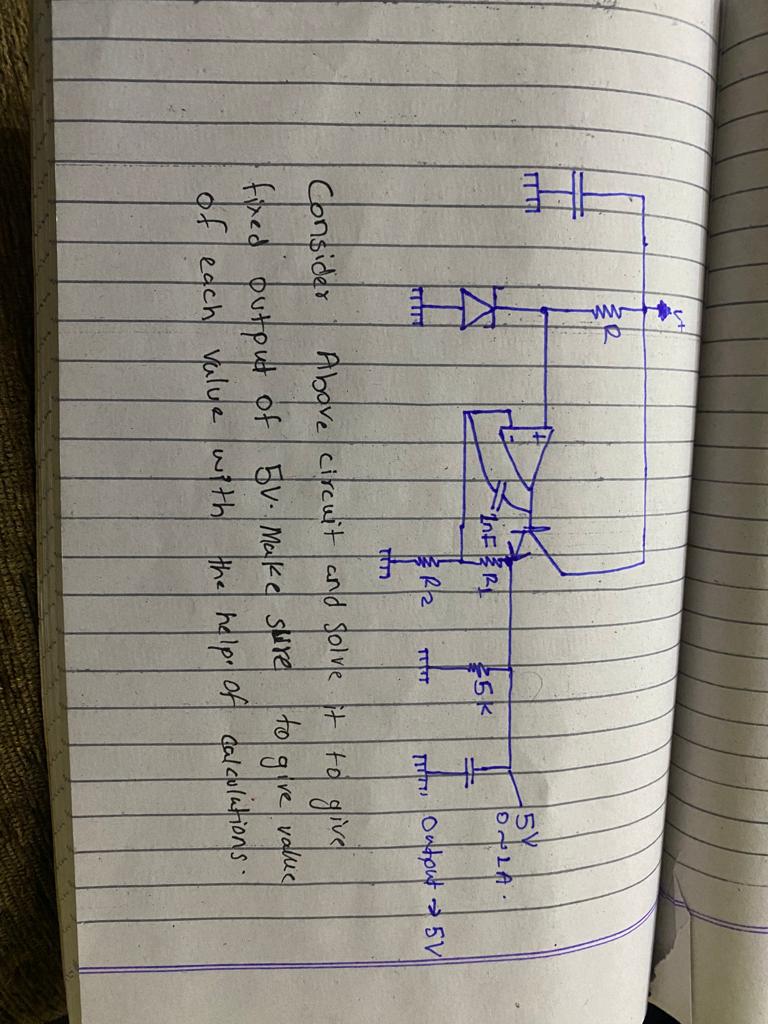 V+
R
+
-
1nF
R1
R2
5K
5V
0~2A.
Output → 5V
Consider Above circuit and Solve it to give
fixed output of 5V. Make sure to give value
of each value with the help of calculations.